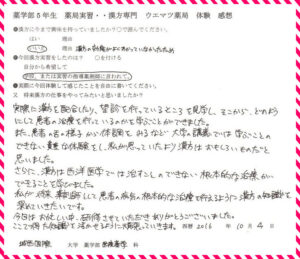 薬学部5年生 薬局実習・・漢方専門 ウエマツ薬局 体験 感想
●漢方に今まで興味を持っていましたか?○で囲って下さい。
はい 理由
いいえ 理由 漢方の知識がよくわかっていなかったため
●今回漢方実習をしたのは? ○を付ける
自分から希望して
学校、または実習の指導薬剤師に言われて。
●実際に今回体験して感じたことを自由に書いてください。
又 将来漢方の仕事をやってみたいと思いましたか?
実際に漢方を配合したり、望診を行っているところを見学し、そこから、どのよう
にして患者の治療を行っているのかを学ぶことができました。
また、患者の の様子から体調を みるなど 大学の講義では学ぶことの
できない貴重な体験をし、私が思っていたより漢方はおもしろいものだと
思いました。
さらに、漢方は西洋医学では治すことのできない根本的な治療が
できることを学びました。
私が将来、薬剤師として患者の病気の根本的な治療を行えるように漢方の知識を
深めていきたいです。
今日はお忙しい中、研修させていただきありがとうございました。
ここで得た知識を活かせるように頑張っていきます。 西暦 2016 年 10 月 4 日
城西国際 大学 薬学部 医療薬学 科